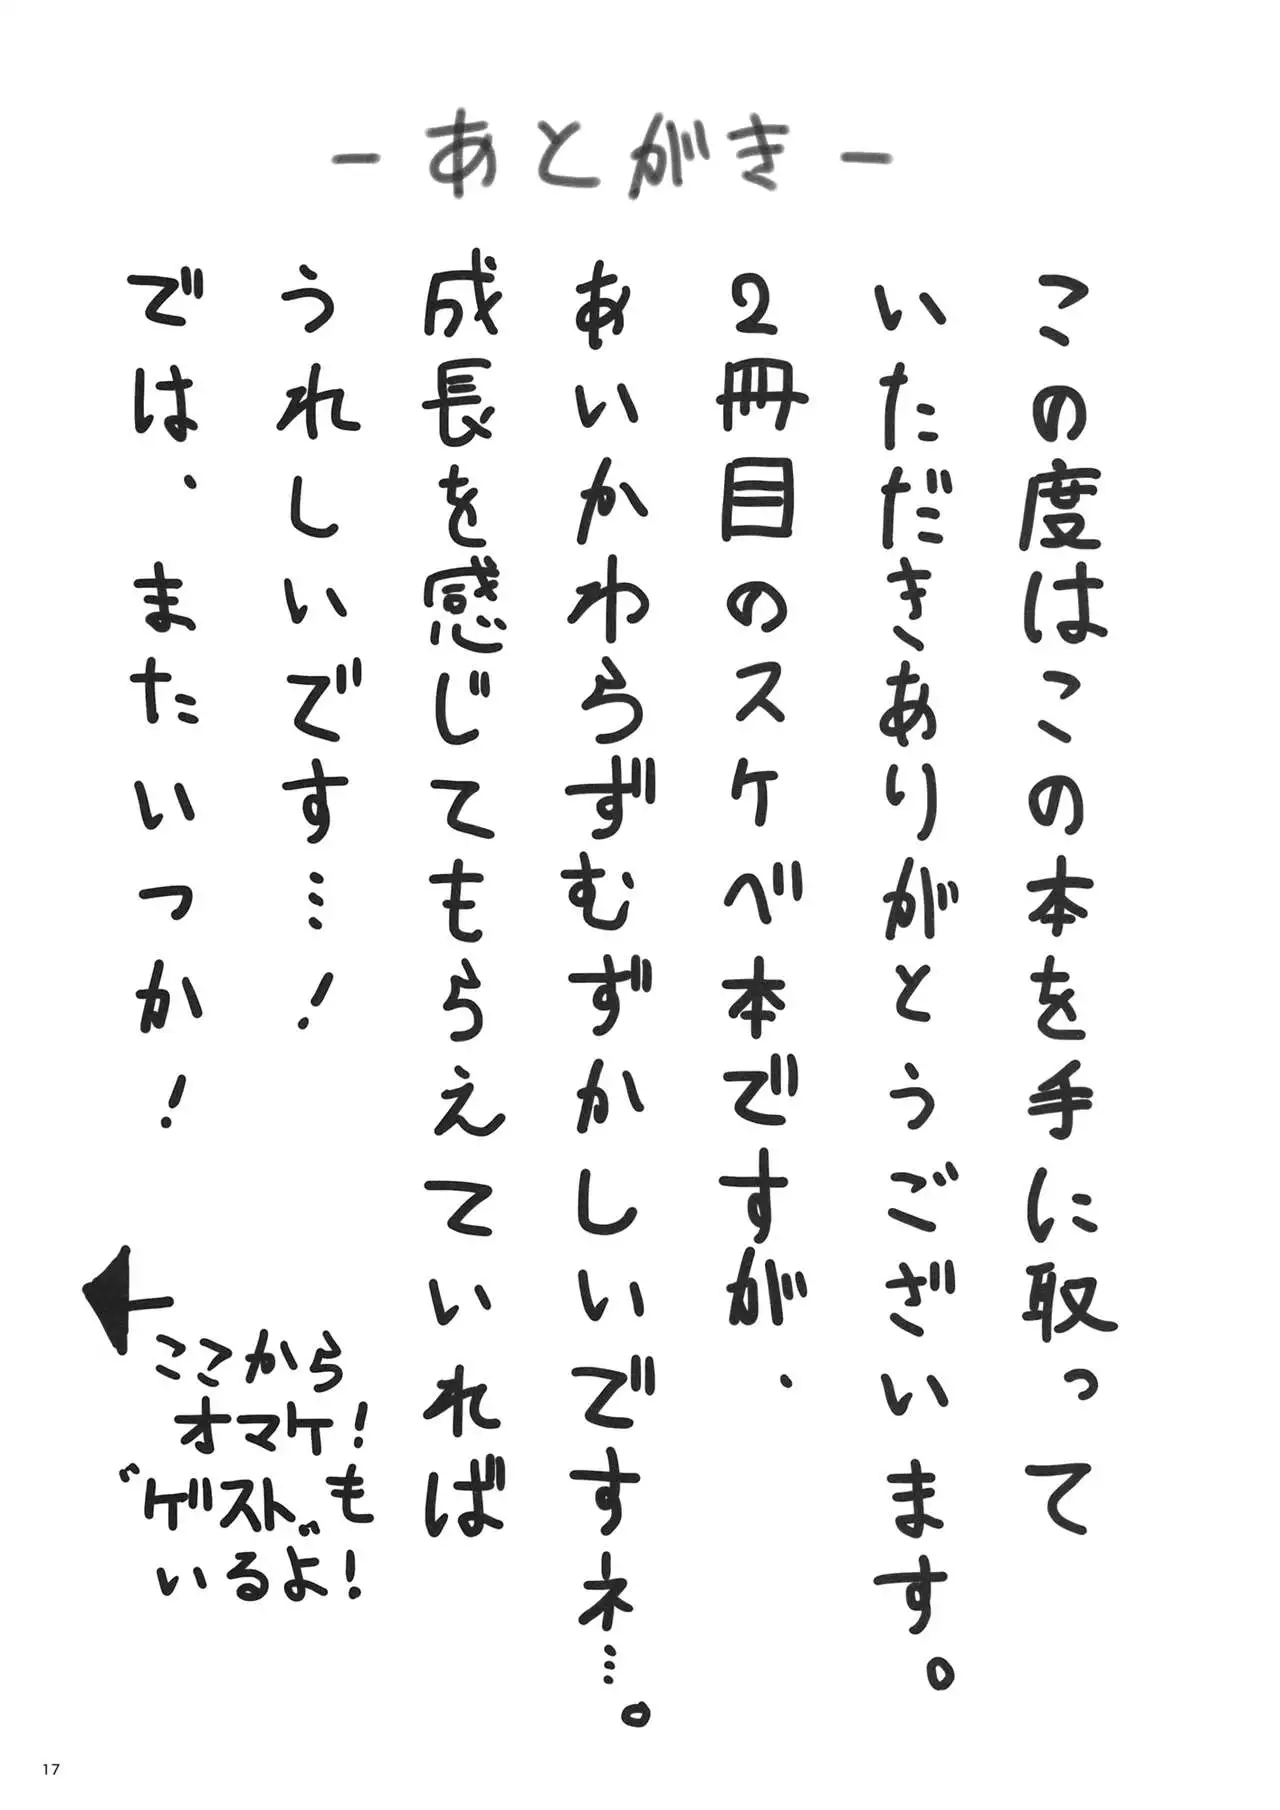 -あとがき-
この度はこの本を手に取って
いただきありがとうございます。
2冊目のスケベ本ですが、
あいかわらずむずかしいですネ…。
成長を感じてもらえていれば
うれしいです…！
では、またいつか！
ここから
オマケ！
〝ゲスト〟も
いるよ！
17